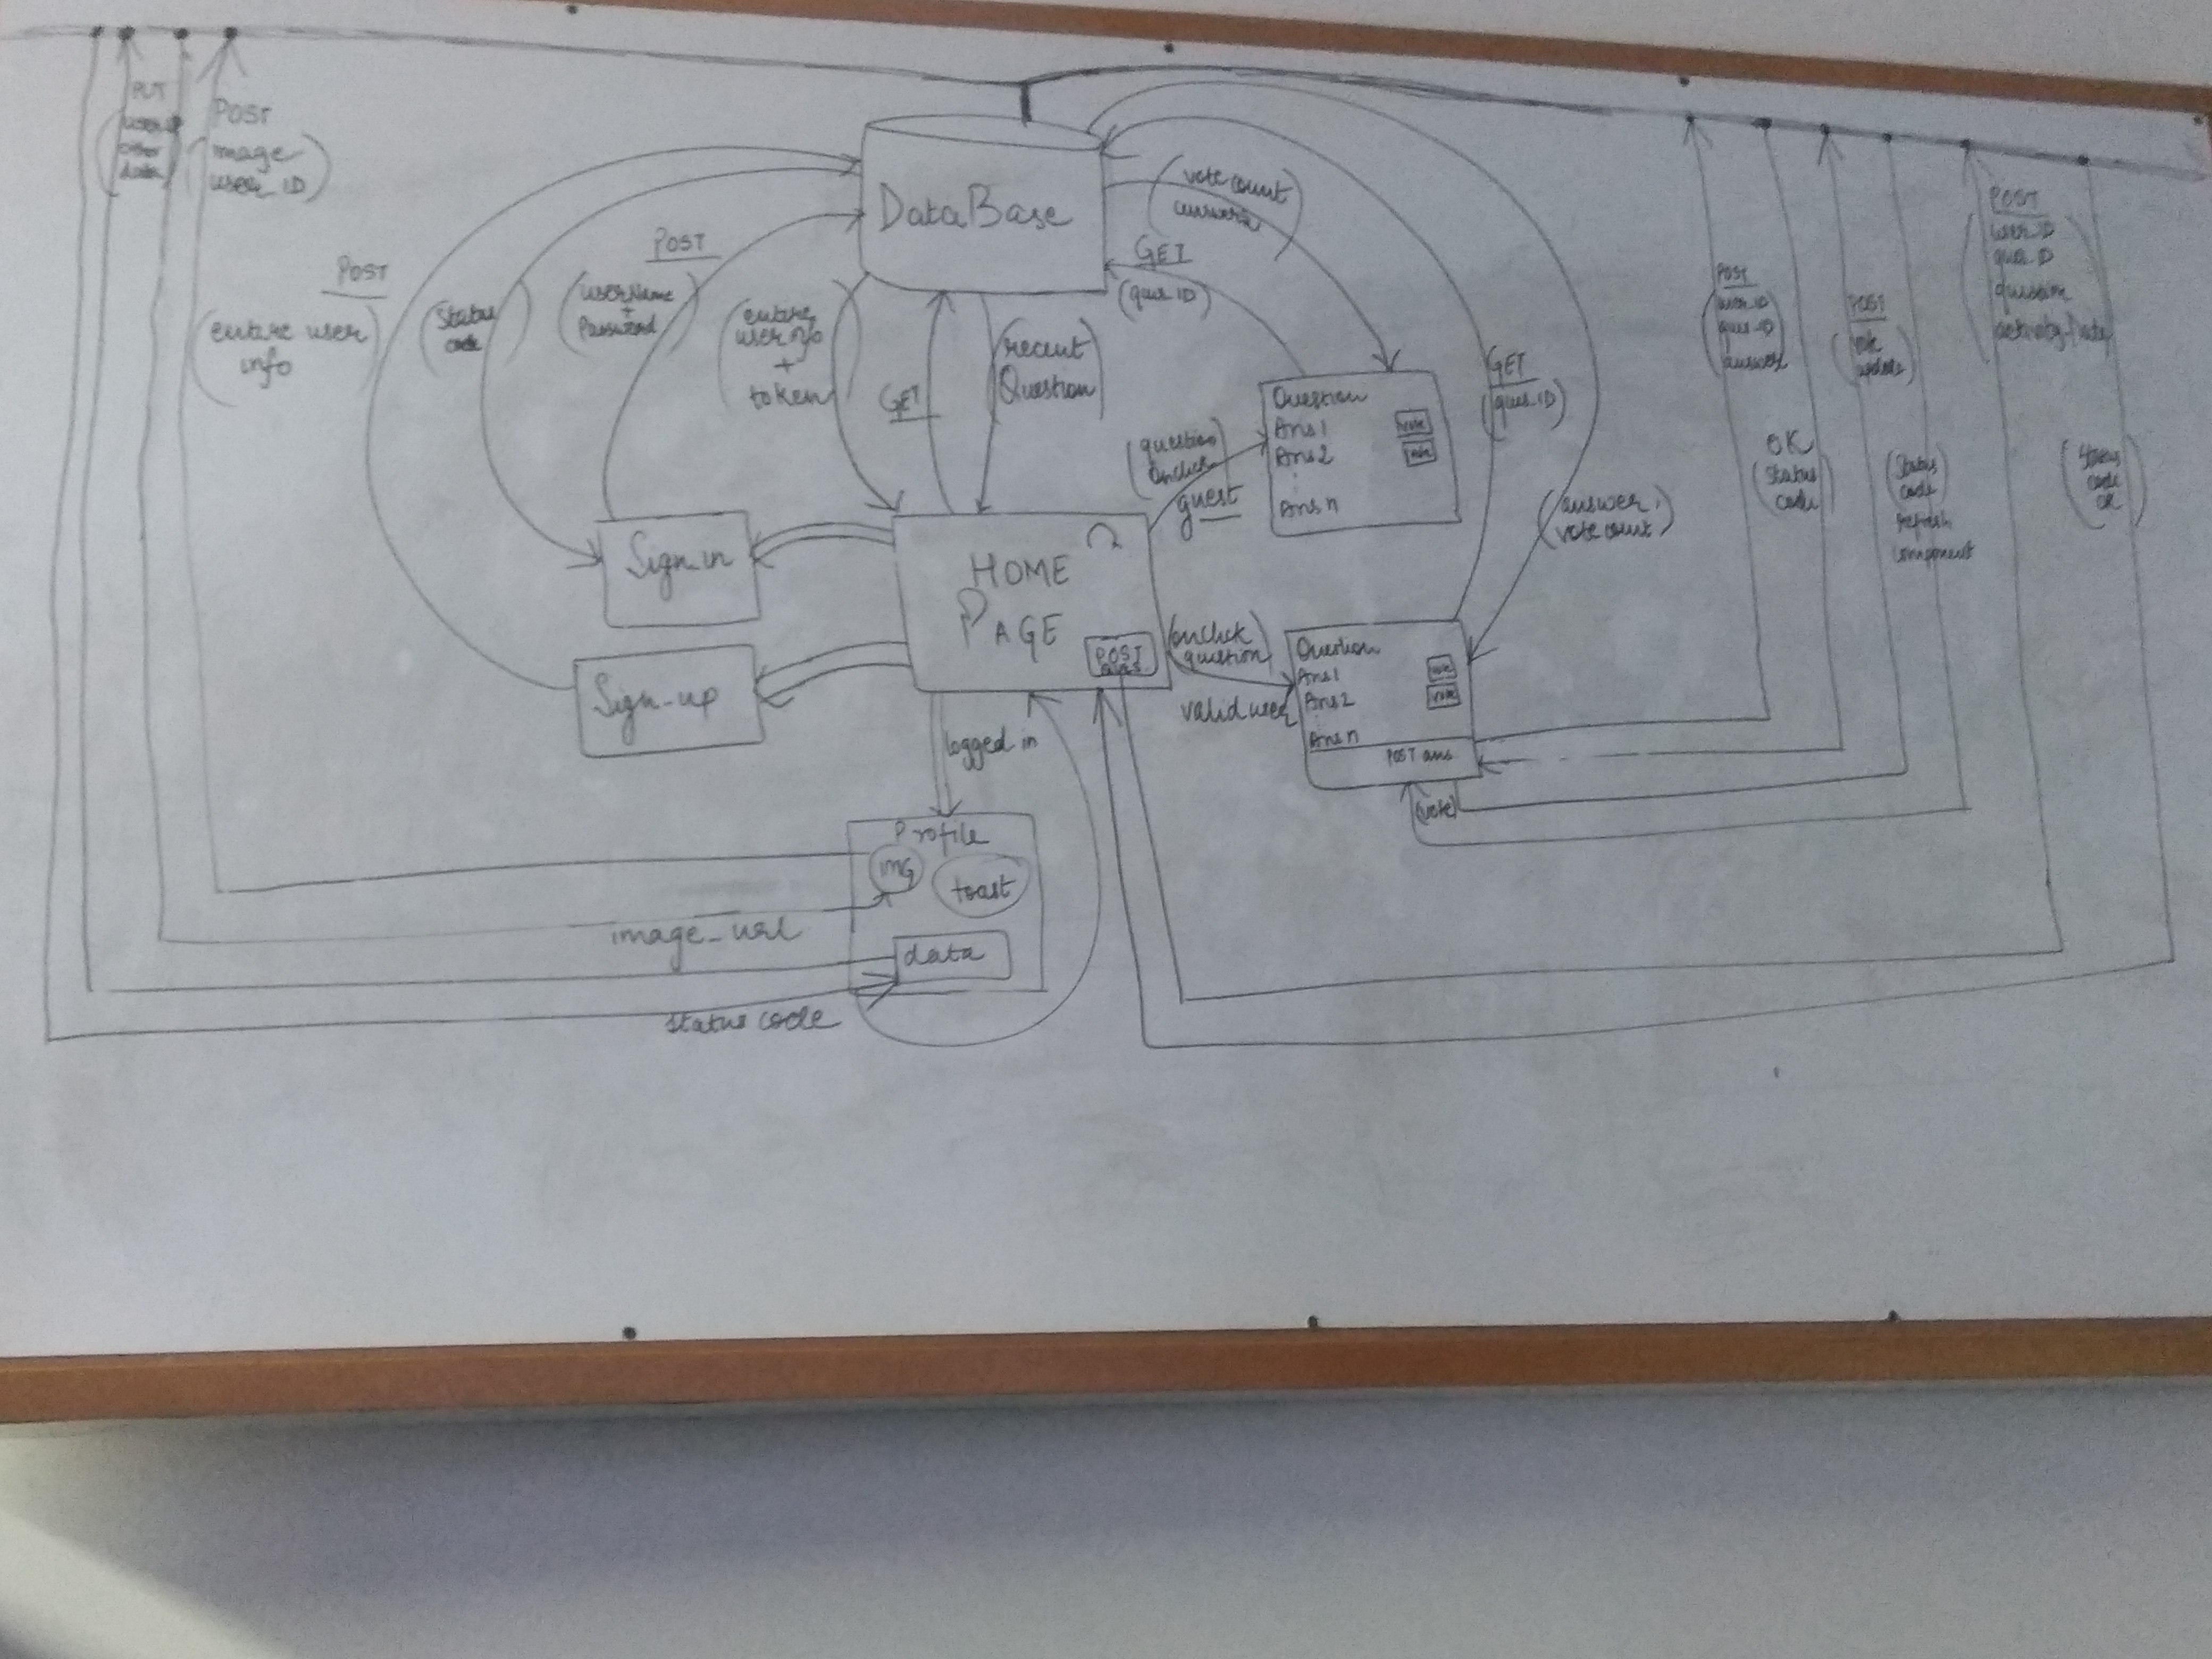 PUT
other
data
POST
image
user_ID
POST
entire user
info
Status
code
POST
userName
+
Password
entire
user info
+
token
DataBase
GET
recent
Question
vote count
GET
(ques_ID)
Question
Ans1
vote
Ans2
vote
Ans n
(question
Onclick)
guest
GET
(ques_ID)
(answer,
vote count)
POST
user_ID
ques_ID
answer
OK
(status
code)
POST
update
(Status
code)
refresh
component
POST
user_ID
ques_ID
question
activity_Date
(Status
code
OK)
Sign_in
Sign-up
HOME
PAGE
POST
ques
(onclick
question)
valid user
Question
Ans1
vote
Ans2
vote
Ans n
POST ans
(vote)
logged in
Profile
img
toast
image_url
data
status code